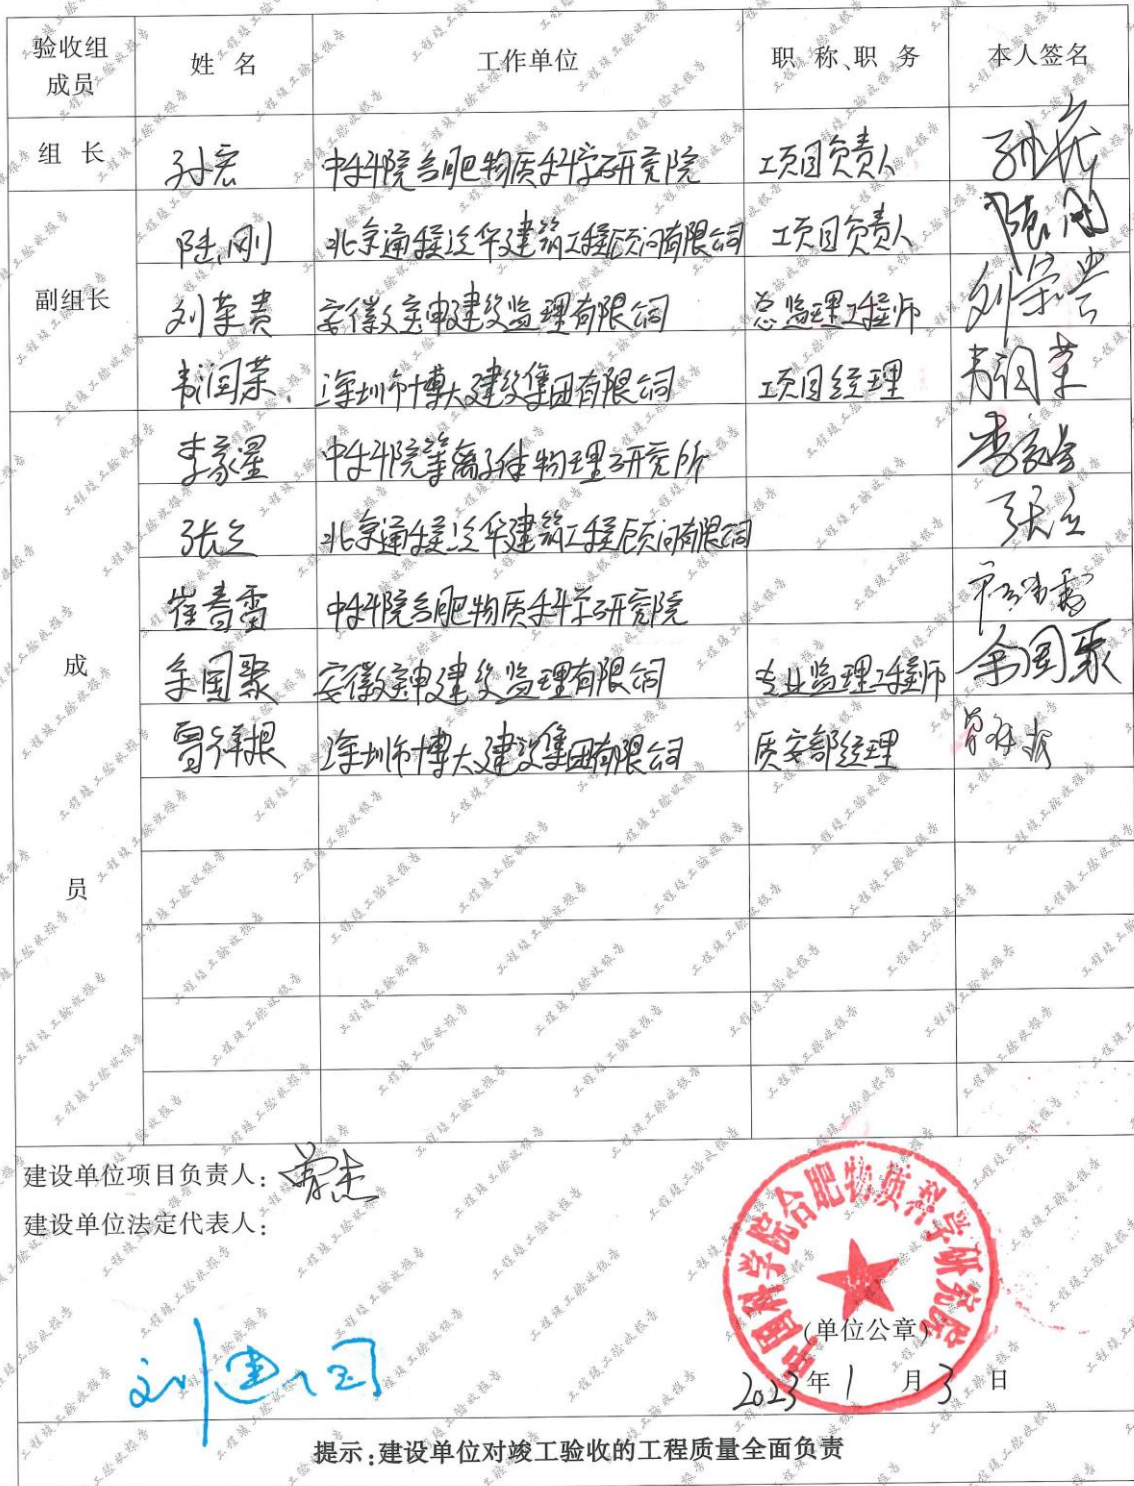 验收组成员 姓 名 工作单位 职 称、职 务 本人签名
组 长 孙宏 中科院合肥物质科学研究院 项目负责人 孙宏
副组长 陆刚 北京通程泛华建筑工程顾问有限公司 项目负责人 陆刚
刘荣贵 安徽文申建设监理有限公司 总监理工程师
韦润荣 深圳市博大建设集团有限公司 项目经理 韦润荣
成员 李家星 中科院等离子体物理研究所 李家星
张立 北京通程泛华建筑工程顾问有限公司 张立
崔春雷 中科院合肥物质科学研究院
余国聚 安徽 建设监理有限公司 专业监理工程师 余国聚
曾祥根 深圳市博大建设集团有限公司 质安部经理 曾祥根
建设单位项目负责人:
建设单位法定代表人:
刘建国
中国科学院合肥物质科学研究院
(单位公章)
2023年1月3日
提示:建设单位对竣工验收的工程质量全面负责
工程竣工验收报告